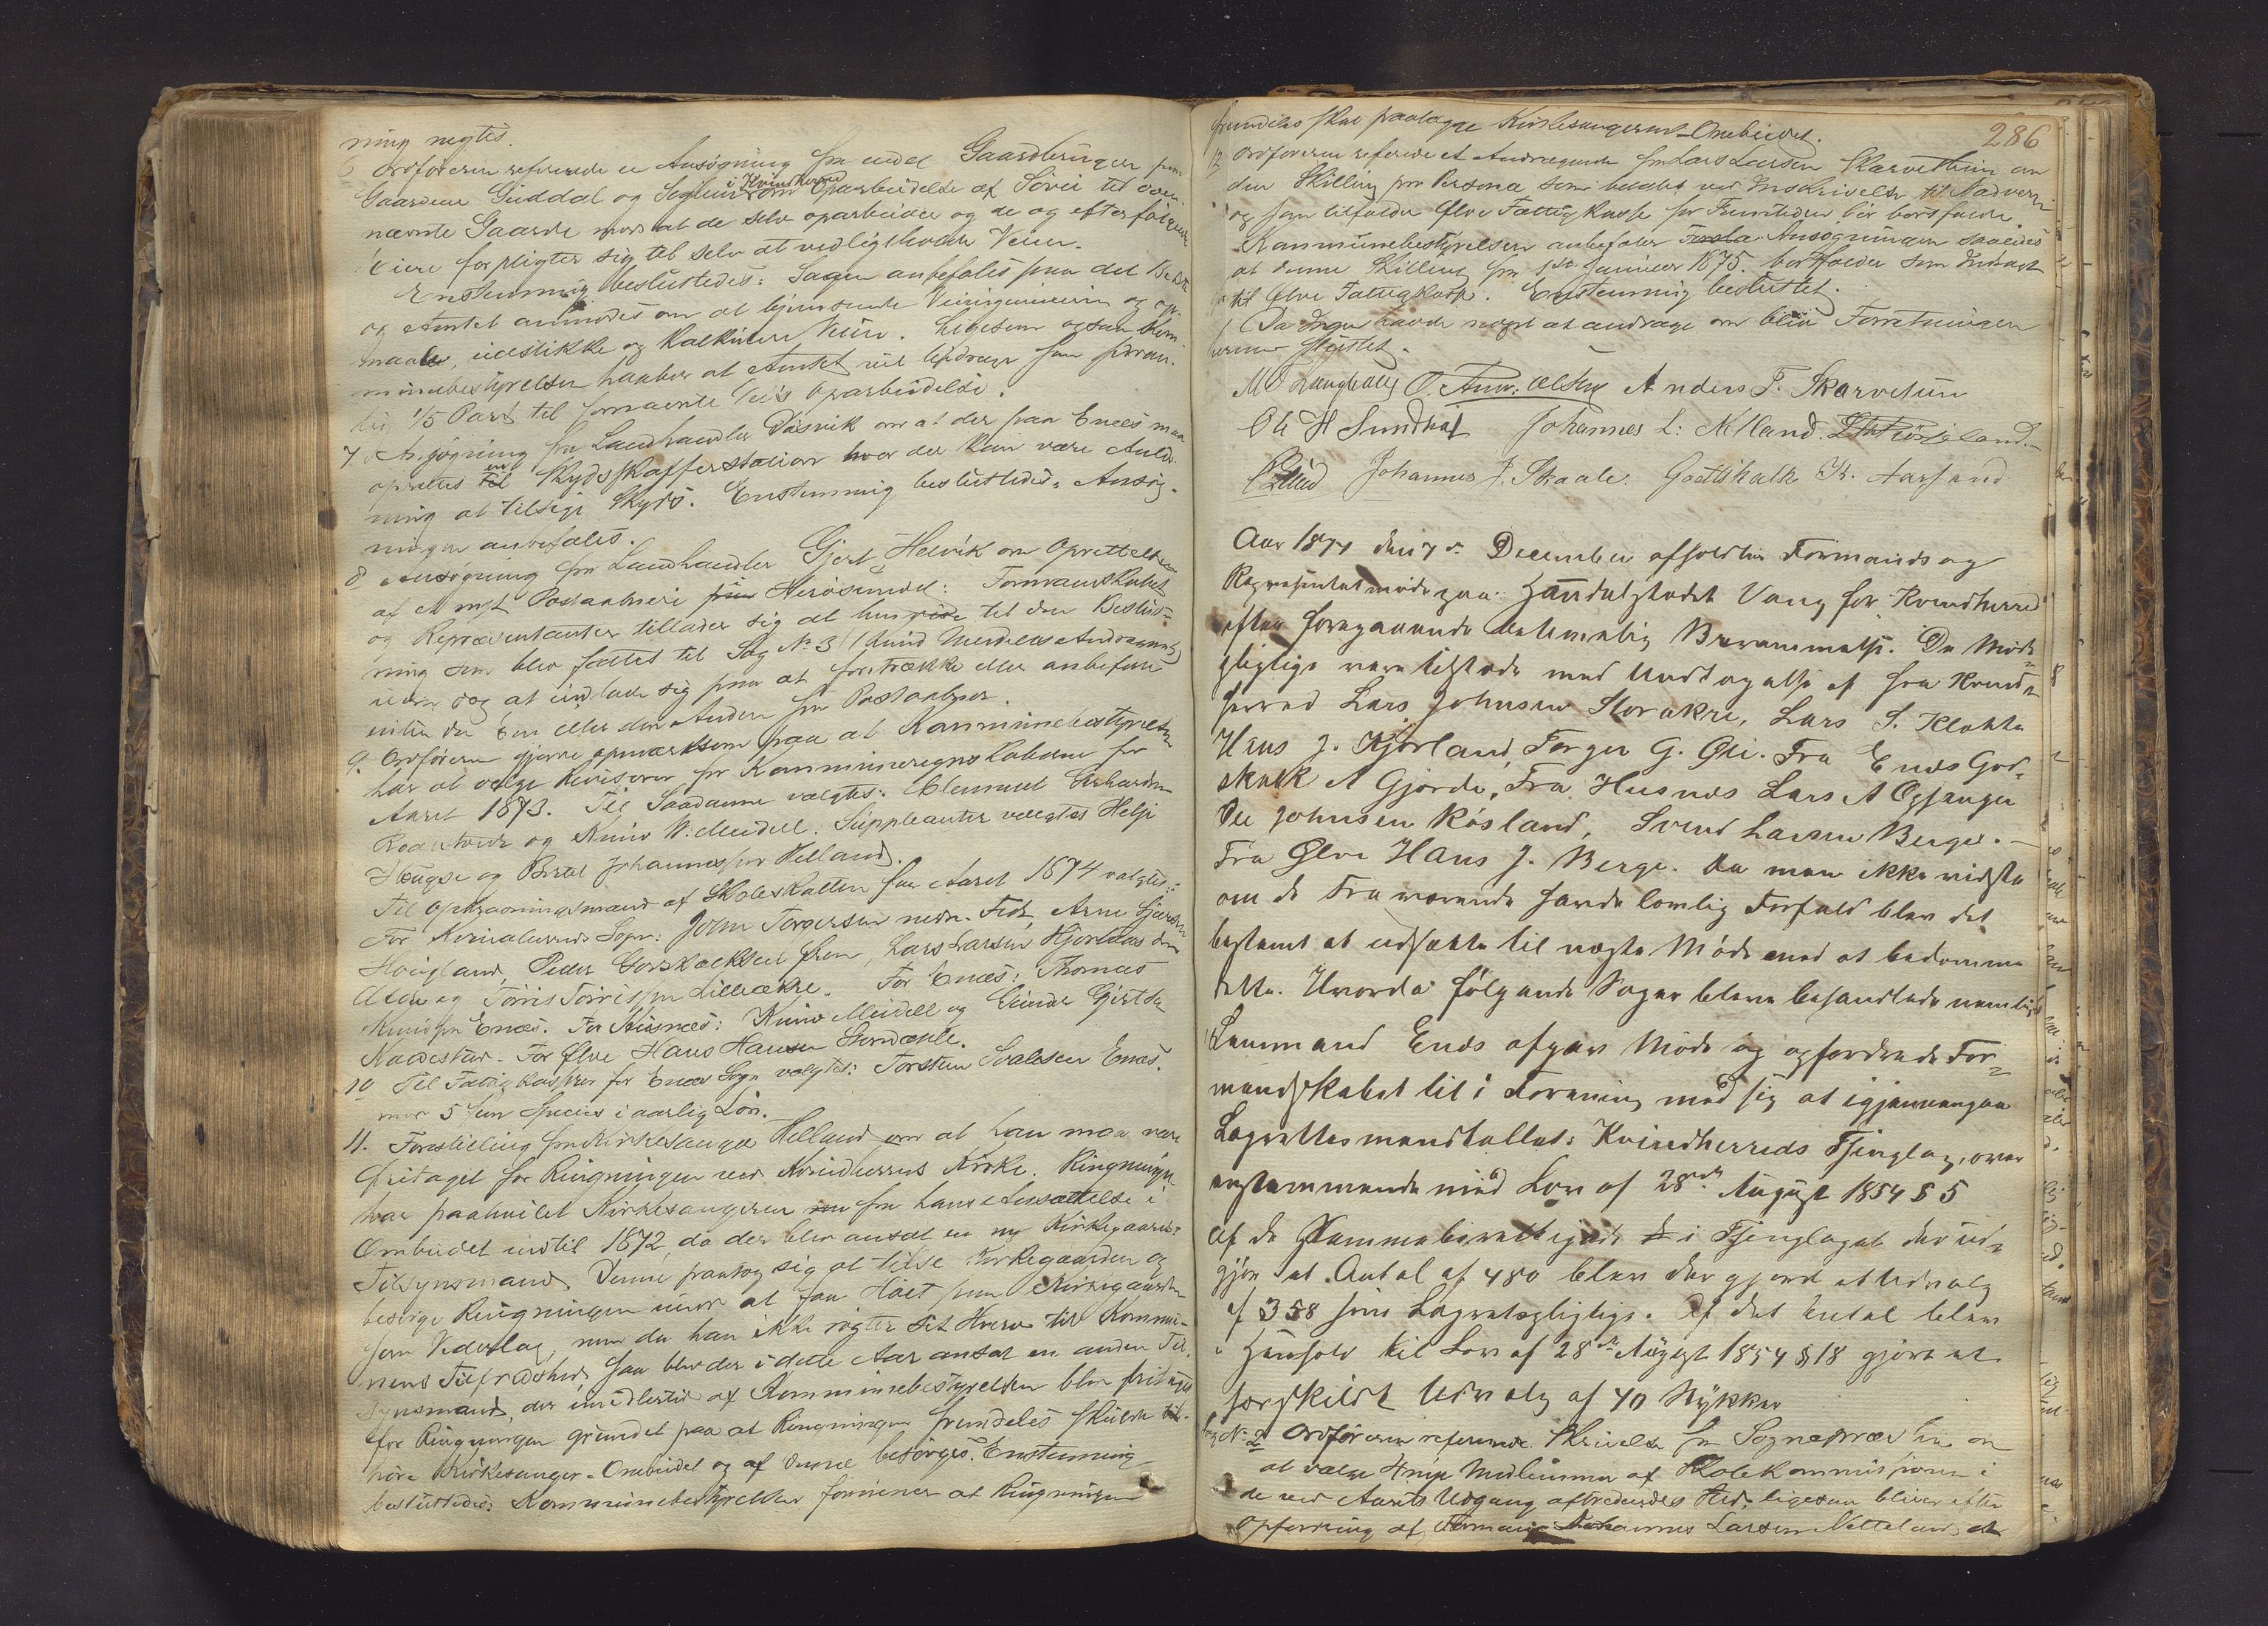 ning negtes.
6 Ordføreren refererede en Ansøgning fra endel Gaardbrugere paa
Gaardene Guddal og Seglem i Kvindherred om Oparbeidelse af Sovei til oven
nævnte Gaarde mod at de selv oparbeider og de og efterfølgende
Eiere forpligter sig til selv at vedligeholde Veien.
Enstemmig besluttedes: Sagen anbefales paa det Bedste
og Amtet anmodes om at hjemsende Veiingeniøren og op-
maale, udstikke og kalkulere Veien. Ligesom ogsaa Kom-
munebestyrelsen haaber at Amtet vil bidrage
1/5 Part til fornævnte Veis Oparbeidelse.
7. Ansøgning fra Landhandler Døsvik om at der paa Enæs maa
oprettes en Skydsskafferstation hvor der kan være Anled-
ning at tilsige Skyds. Enstemmig besluttedes: Ansøg-
ningen anbefales.
8 Ansøgning fra Landhandler Gjert Helvik om Oprettelse
af et nyt Postaabneri Herøsundet: Formandskabet
og Repræsentanter tillader sig at henvise til den Beslut-
ning som blev fattet til Sag No 3 (Knud Meidells Andragende)
uden dog at indlade sig paa at foretrække eller anbefale
enten den Ene eller den Anden for Postaabner.
9. Ordføreren gjorde opmærksom paa at Kommunebestyrelsen
har at vælge Revisorer for Kommuneregnskaberne for
Aaret 1873. Til Saadanne valgtes: Clemmet
og Knud W. Meidell. Suppleanter valgtes Helje
Haugse og Johannessen Helland.
Til Opkrævningsmænd af Skoleskatten for Aaret 1874 valgtes:
For Kvindherreds Sogn: John Torgersen nedre Fet, Arne
Hougland, Peder Gotskalksen, Lars Larsen Hjortaas
og Tørris Tørrissen Lilleækre. For Enæs: Thomas
Knudsen Enæs. For Husnæs: Knud Meidell og Gjertsen
For Ølve Hans Hansen
10 Til Fattigkasserer for Enæs Sogn valgtes: Torsten Enæs.
mod 5 fem Species i aarlig Løn.
11. Forestilling fra Kirkesanger Helland om at han maa være
fritaget for Ringningen ved Kvindherreds Kirke. Ringningen
har paahvilet Kirkesangeren fra hans Ansættelse i
Ombudet indtil 1872, da der blev ansat en ny Kirkegaards-
Tilsynsmand. Denne paatog sig at tilse Kirkegaarden og
besørge Ringningen imod at faa Høet paa Kirkegaarden
som Vederlag, men da han ikke røgter sit Hverv til Kommu-
nens Tilfredshed, saa blev der i dette Aar ansat en anden Til-
synsmand, der imidlertid af Kommunebestyrelsen blev fritaget
for Ringningen grundet paa at Ringningen fremdeles skulde til-
høre Kirkesanger-Ombudet og af denne besørges. Enstemmig
besluttedes: Kommunebestyrelsen formener at Ringningen
286
fremdeles skal paalægge Kirkesangerens Ombudet.
12 Ordføreren refererede et Andragende fra Lars Larsen Skarvethun om
den Skilling pr Persona som betales ved Inskrivelse til Nadveren
og som tilfalder Ølve Fattigkasse for Fremtiden bør bortfalde.
Kommunebestyrelsen anbefaler Ansøgningen saaledes
at denne Skilling fra 1ste Januar 1875. bortfalder som Indtægt
til Ølve Fattigkasse. Enstemmig besluttet.
Da Ingen havde noget at andrage om blev Forretningen
hermed sluttet.
Anders T. Skarvetun
Ole H Sundhal Johannes L: Netland.
Johannes J. Skaale. Godtskalk Aarsand
Aar 1874 den 7de December afholdtes Formands og
Repræsentantmøde paa Handelsstedet Vang for Kvindherred
efter foregaaende lovlig Berammelse. De Møde-
pligtige vare tilstede med Undtagelse af fra Kvind-
herred Lars Johnsen Storakre, Lars S. Klokke
Hans J. Kjørland, Torger G. Øie. Fra Enæs God-
skalk A Gjerde, Fra Husnæs Lars A Opsanger
Ole Johnsen Røsland, Svend Larsen Berge.-
Fra Ølve Hans J. Berge. Da man ikke vidste
om de Fraværende havde lovlig Forfald blev det
bestemt at udsætte til næste Møde med at bedømme
dette. Hvorda følgende Sager bleve behandlede nemlig:
Lensmand Enæs afgav Møde og opfordrede For-
mandskabet til i Forening med sig at igjennemgaa
Lagrettesmandtallet: Kvindherreds Thinglag, over
enstemmende med Lov af 28de August 1854 § 5
af de Stemmeberettigede i Thinglaget der ud-
gjør et Antal af 480 blev der gjort et Udvalg
af 358 som Lagretspligtige. Af det Antal blev
i Henhold til Lov af 28de August 1854 § 18 gjort et
særskildt Udvalg af 40 Stykker
Sag No 2 Ordføreren refererede Skrivelse fra Sognepræsten om
at vælge nye Medlemmer af Skolekommissionen i
de ved Aarets Udgang aftrædendes Sted, ligesaa bliver efter
Opfordring af Formand Johannes Larsen Netteland